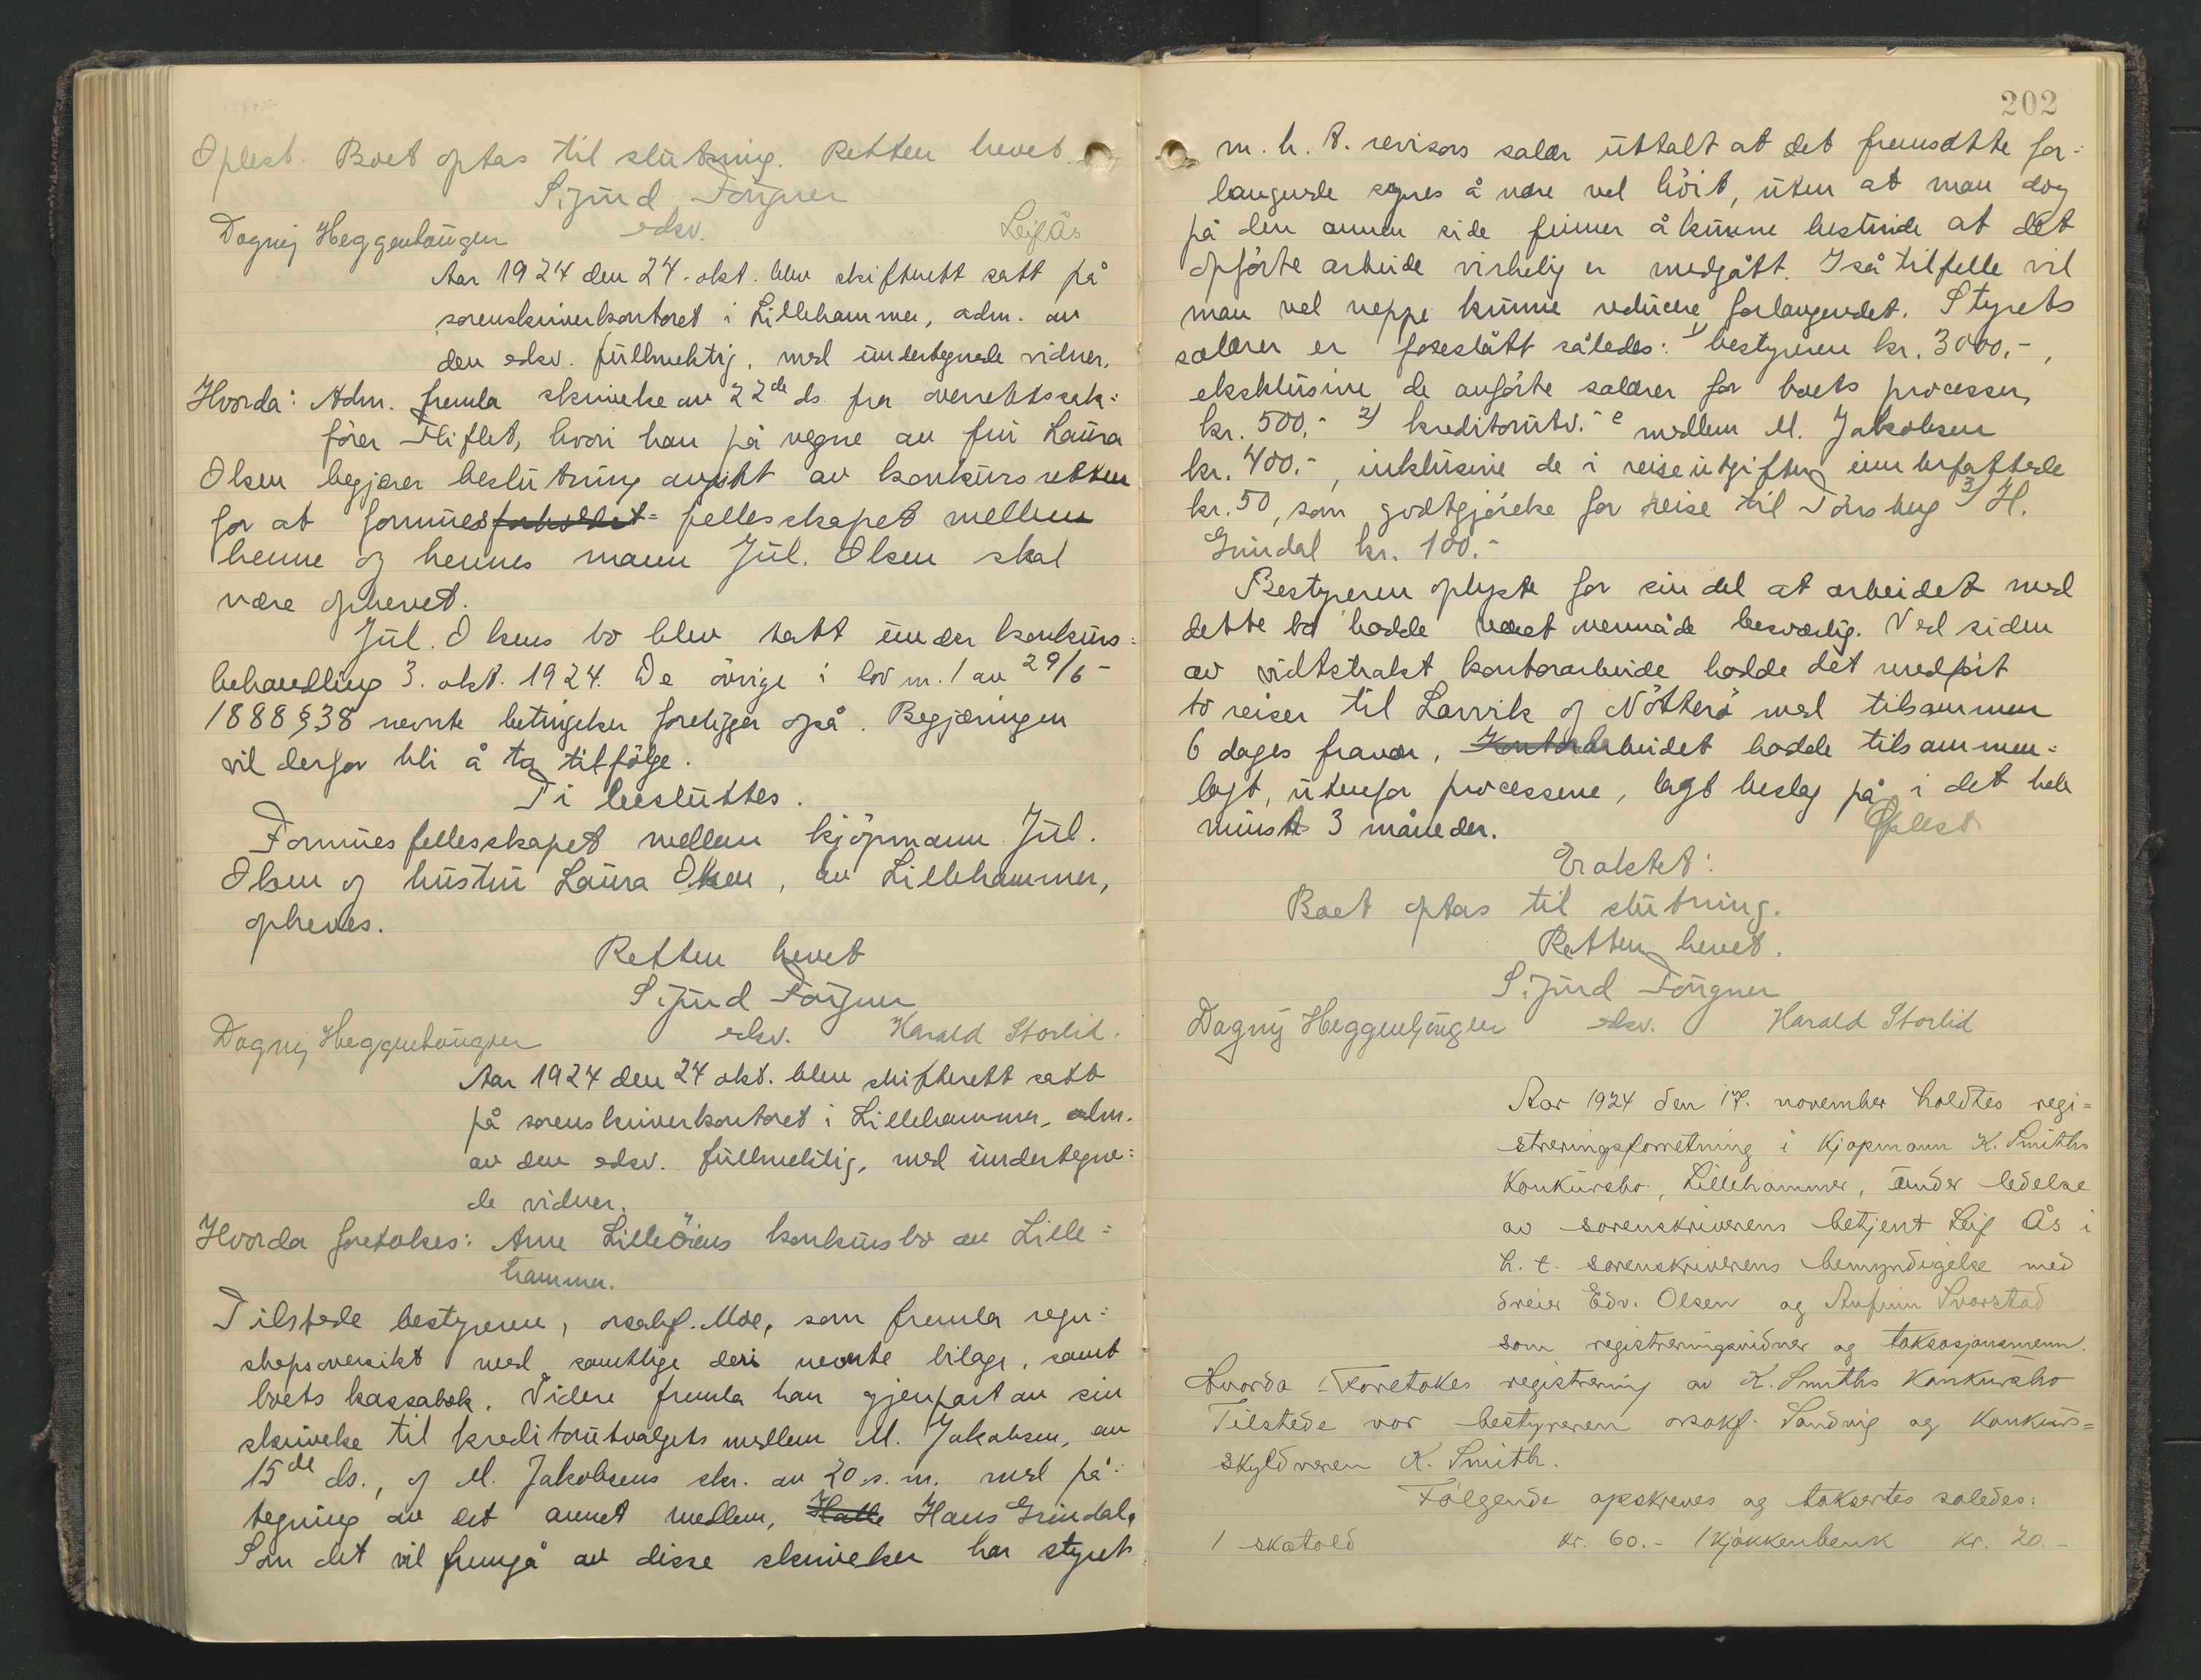 Oplest. Boet optas til slutning. Retten hevet.
Sigurd Fougner
Dagny Heggenhougen edsv. Leif Ås
Aar 1924 den 24. okt. blev skifterett satt på
sorenskriverkontoret i Lillehammer, adm. av
den edsv. fullmektig, med undertegnede vidner.
Hvorda: Adm. fremla skrivelse av 22de ds. fra overrettssak-
fører Fliflet, hvori han på vegne av fru Laura
Olsen begjærer beslutning avsikt av konkursretten
for at formuesforholdet- fellesskapet mellem
henne og hennes mann Jul. Olsen skal
være ophevet.
Jul. Olsens bo blev tatt under konkurs-
behandling 3. okt. 1924. De øvrige i lov nr. 1 av 29/6-
1888 § 38 nevnte betingelser foreligger også. Begjæringen
vil derfor bli å ta tilfølge.
Ti besluttes.
Formuesfellesskapet mellem kjøpmann Jul.
Olsen og hustru Laura Olsen, av Lillehammer,
opheves.
Retten hevet
Sigurd Fougner
Dagny Heggenhougen edsv. Harald Storlid.
Aar 1924 den 24 okt. blev skifterett satt
på sorenskriverkontoret i Lillehammer, adm.
av den edsv. fullmektig, med undertegne-
de vidner.
Hvorda foretokes: Arne Lilleöiens konkursbo av Lille-
hammer.
Tilstede bestyreren, osakf. Moe, som fremla regn-
skapsoversikt med samtlige deri nevnte bilage, samt
boets kassabok. Videre fremla han gjenpart av sin
skrivelse til kreditorutvalgets medlem M. Jakobsen, av
15de ds., og M. Jakobsens skr. av 20. s. m. med på-
tegning av det annet medlem, Halle Hans Grindal.
Som det vil fremgå av disse skrivelser har styret
202
m. h. t. revisors salær uttalt at det fremsatte for-
langende synes å være vel höit, uten at man dog
på den annen side finner å kunne bestride at det
opförte arbeide virkelig er medgått. I så tilfelle vil
man vel neppe kunne reducere forlangendet. Styrets
salærer er foreslått således: 1) bestyreren kr. 3000,-,
eksklusive de anførte salærer for boets processer,
kr. 500,- 2) kreditorutv. medlem M. Jakobsen
kr. 400.-, inklusive de i reiseutgifter innbefattede
kr. 50, som godtgjörelse for reise til Tönsberg 3) H.
Grindal kr. 100.-
Bestyreren oplyste for sin del at arbeidet med
dette bo hadde været overmåde besværlig. Ved siden
av vidtstrakt kontorarbeide hadde det medfört
to reiser til Larvik og Nötterö med tilsammen
6 dages fravær. Kontorarbeidet hadde tilsammen-
lagt, utenfor processene, lagt beslag på i det hele
minst 3 måneder. Oplest
Eraktet:
Boet optas til slutning.
Retten hevet.
Sigurd Fougner
Dagny Heggenhougen edsv. Harald Storlid
Aar 1924 den 17. november holdtes regi-
streringsforretning i Kjøpmann K. Smiths
Konkursbo, Lillehammer, under ledelse
av sorenskriverens betjent Leif Ås i
h. t. sorenskriverens bemyndigelse med
dreier Edv. Olsen og Anfinn Svarstad
som registreringsvidner og taksasjonsmenn.
Hvorda: Foretokes registrering av K. Smiths Konkursbo
Tilstede var bestyreren osakf. Sandvig og Konkurs-
skyldneren K. Smith.
Følgende opskreves og takseertes saledes:
1 skatold kr. 60.- 1 Kjøkkenbenk kr. 20.-